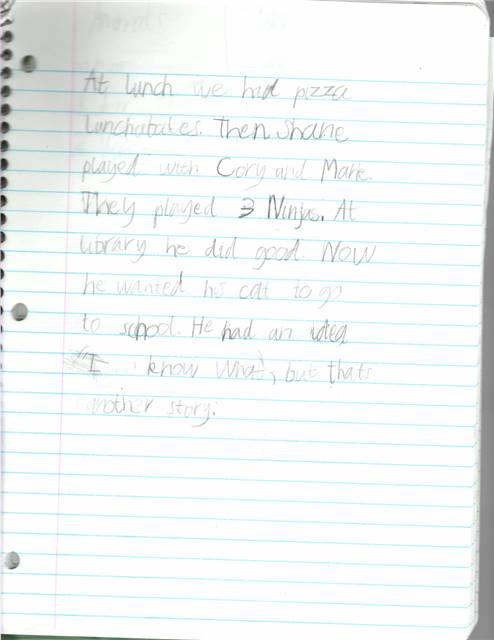 At lunch we had pizza
Lunchabales. Then Shane
played with Cory and Mark.
They played 3 Ninjas. At
library he did good. Now
he wanted his cat to go
to school. He had an idea
"I know what", but thats
another story.